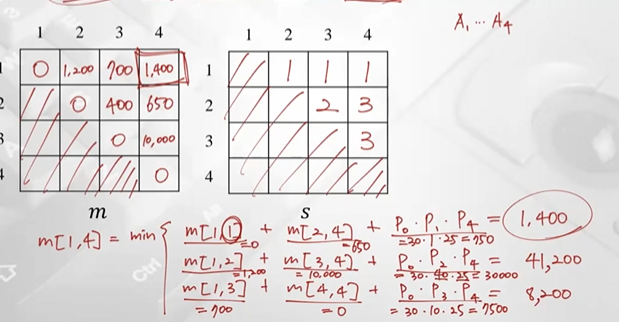 A₁ ... A₄
1 2 3 4
1 0 1,200 700 1,400
2 0 400 650
3 0 10,000
4 0
m
1 2 3 4
1 1 1 1
2 2 3
3 3
4
s
m[1,4] = min {
m[1,1] + m[2,4] + P₀·P₁·P₄ = 1,400
=0 =650 =30·1·25=750
m[1,2] + m[3,4] + P₀·P₂·P₄ = 41,200
=1,200 =10,000 =30·40·25=30000
m[1,3] + m[4,4] + P₀·P₃·P₄ = 8,200
=700 =0 =30·10·25=7500
Ctrl